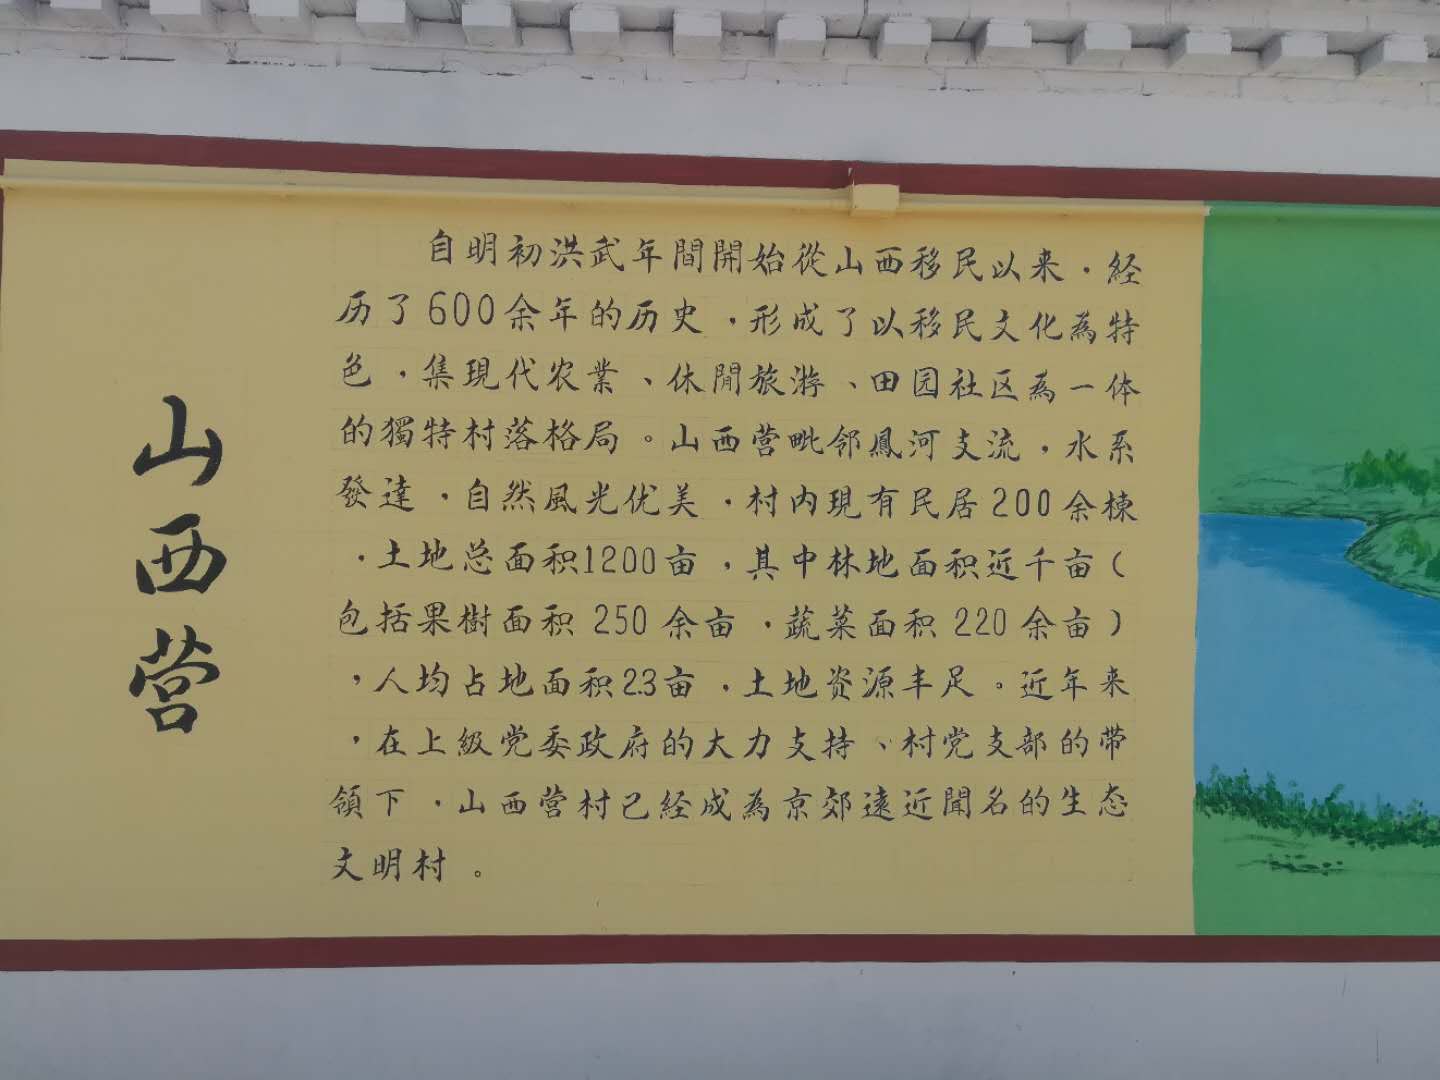 山西营
自明初洪武年間開始從山西移民以来．経
历了600余年的历史，形成了以移民文化為特
色，集現代农業、休閒旅游、田园社区為一体
的獨特村落格局。山西营毗邻鳳河支流，水系
發達．自然風光优美．村内現有民居200余棟
．土地总面积1200亩，其中林地面积近千亩（
包括果樹面积250余亩．蔬菜面积220余亩）
，人均占地面积2.3亩．土地资源丰足。近年来
，在上級党委政府的大力支持、村党支部的带
領下．山西营村已经成為京郊遠近聞名的生态
文明村。